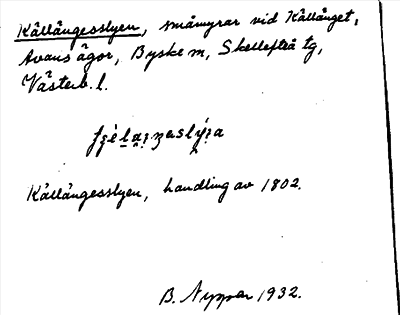 Källängesslyen, småmyrar vid Källänget,
Avans ägor, Byske sn, Skellefteå tg,
Västerb. l.
Källängesslyen, handling av 1802.
B. Nyman 1932.